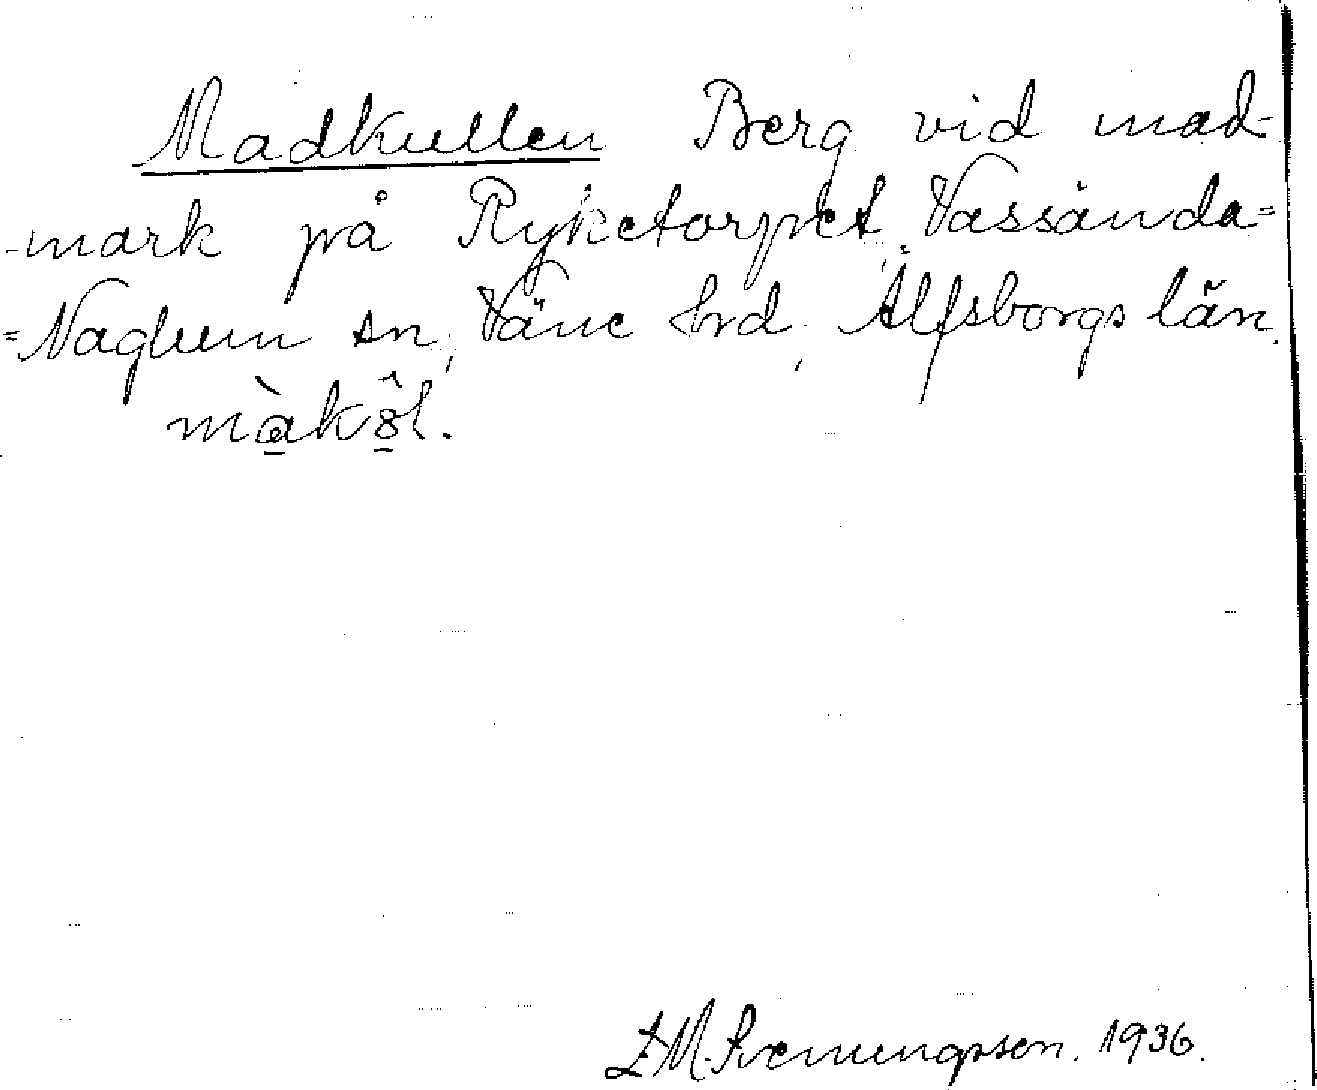 Madkullen Berg vid mad-
-mark på Ryketorpet, Vassända=
=Naglum sn, Väne hrd, Älfsborgs län.
màkô̱l.
M. Svenungsson. 1936.